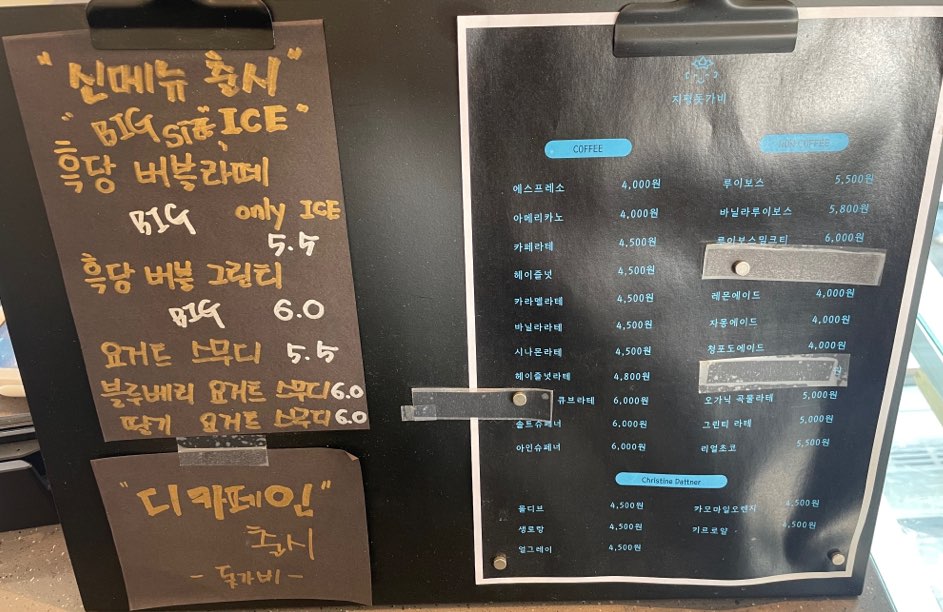 "신메뉴 출시"
"BIG SIZE, ICE"
흑당 버블라떼
BIG only ICE
5.5
흑당 버블 그린티
BIG 6.0
요거트 스무디 5.5
블루베리 요거트 스무디 6.0
딸기 요거트 스무디 6.0
"디카페인"
출시
- 돗가비 -
지평돗가비
COFFEE
에스프레소 4,000원
아메리카노 4,000원
카페라테 4,500원
헤이즐넛 4,500원
카라멜라테 4,500원
바닐라라테 4,500원
시나몬라테 4,500원
헤이즐넛라테 4,800원
큐브라테 6,000원
솔트슈페너 6,000원
아인슈페너 6,000원
NON COFFEE
루이보스 5,500원
바닐라루이보스 5,800원
루이보스밀크티 6,000원
레몬에이드 4,000원
자몽에이드 4,000원
청포도에이드 4,000원
원
오가닉 곡물라테 5,000원
그린티 라테 5,000원
리얼초코 5,500원
Christine Dattner
몰디브 4,500원
생로랑 4,500원
얼그레이 4,500원
카모마일오렌지 4,500원
키르로얄 4,500원